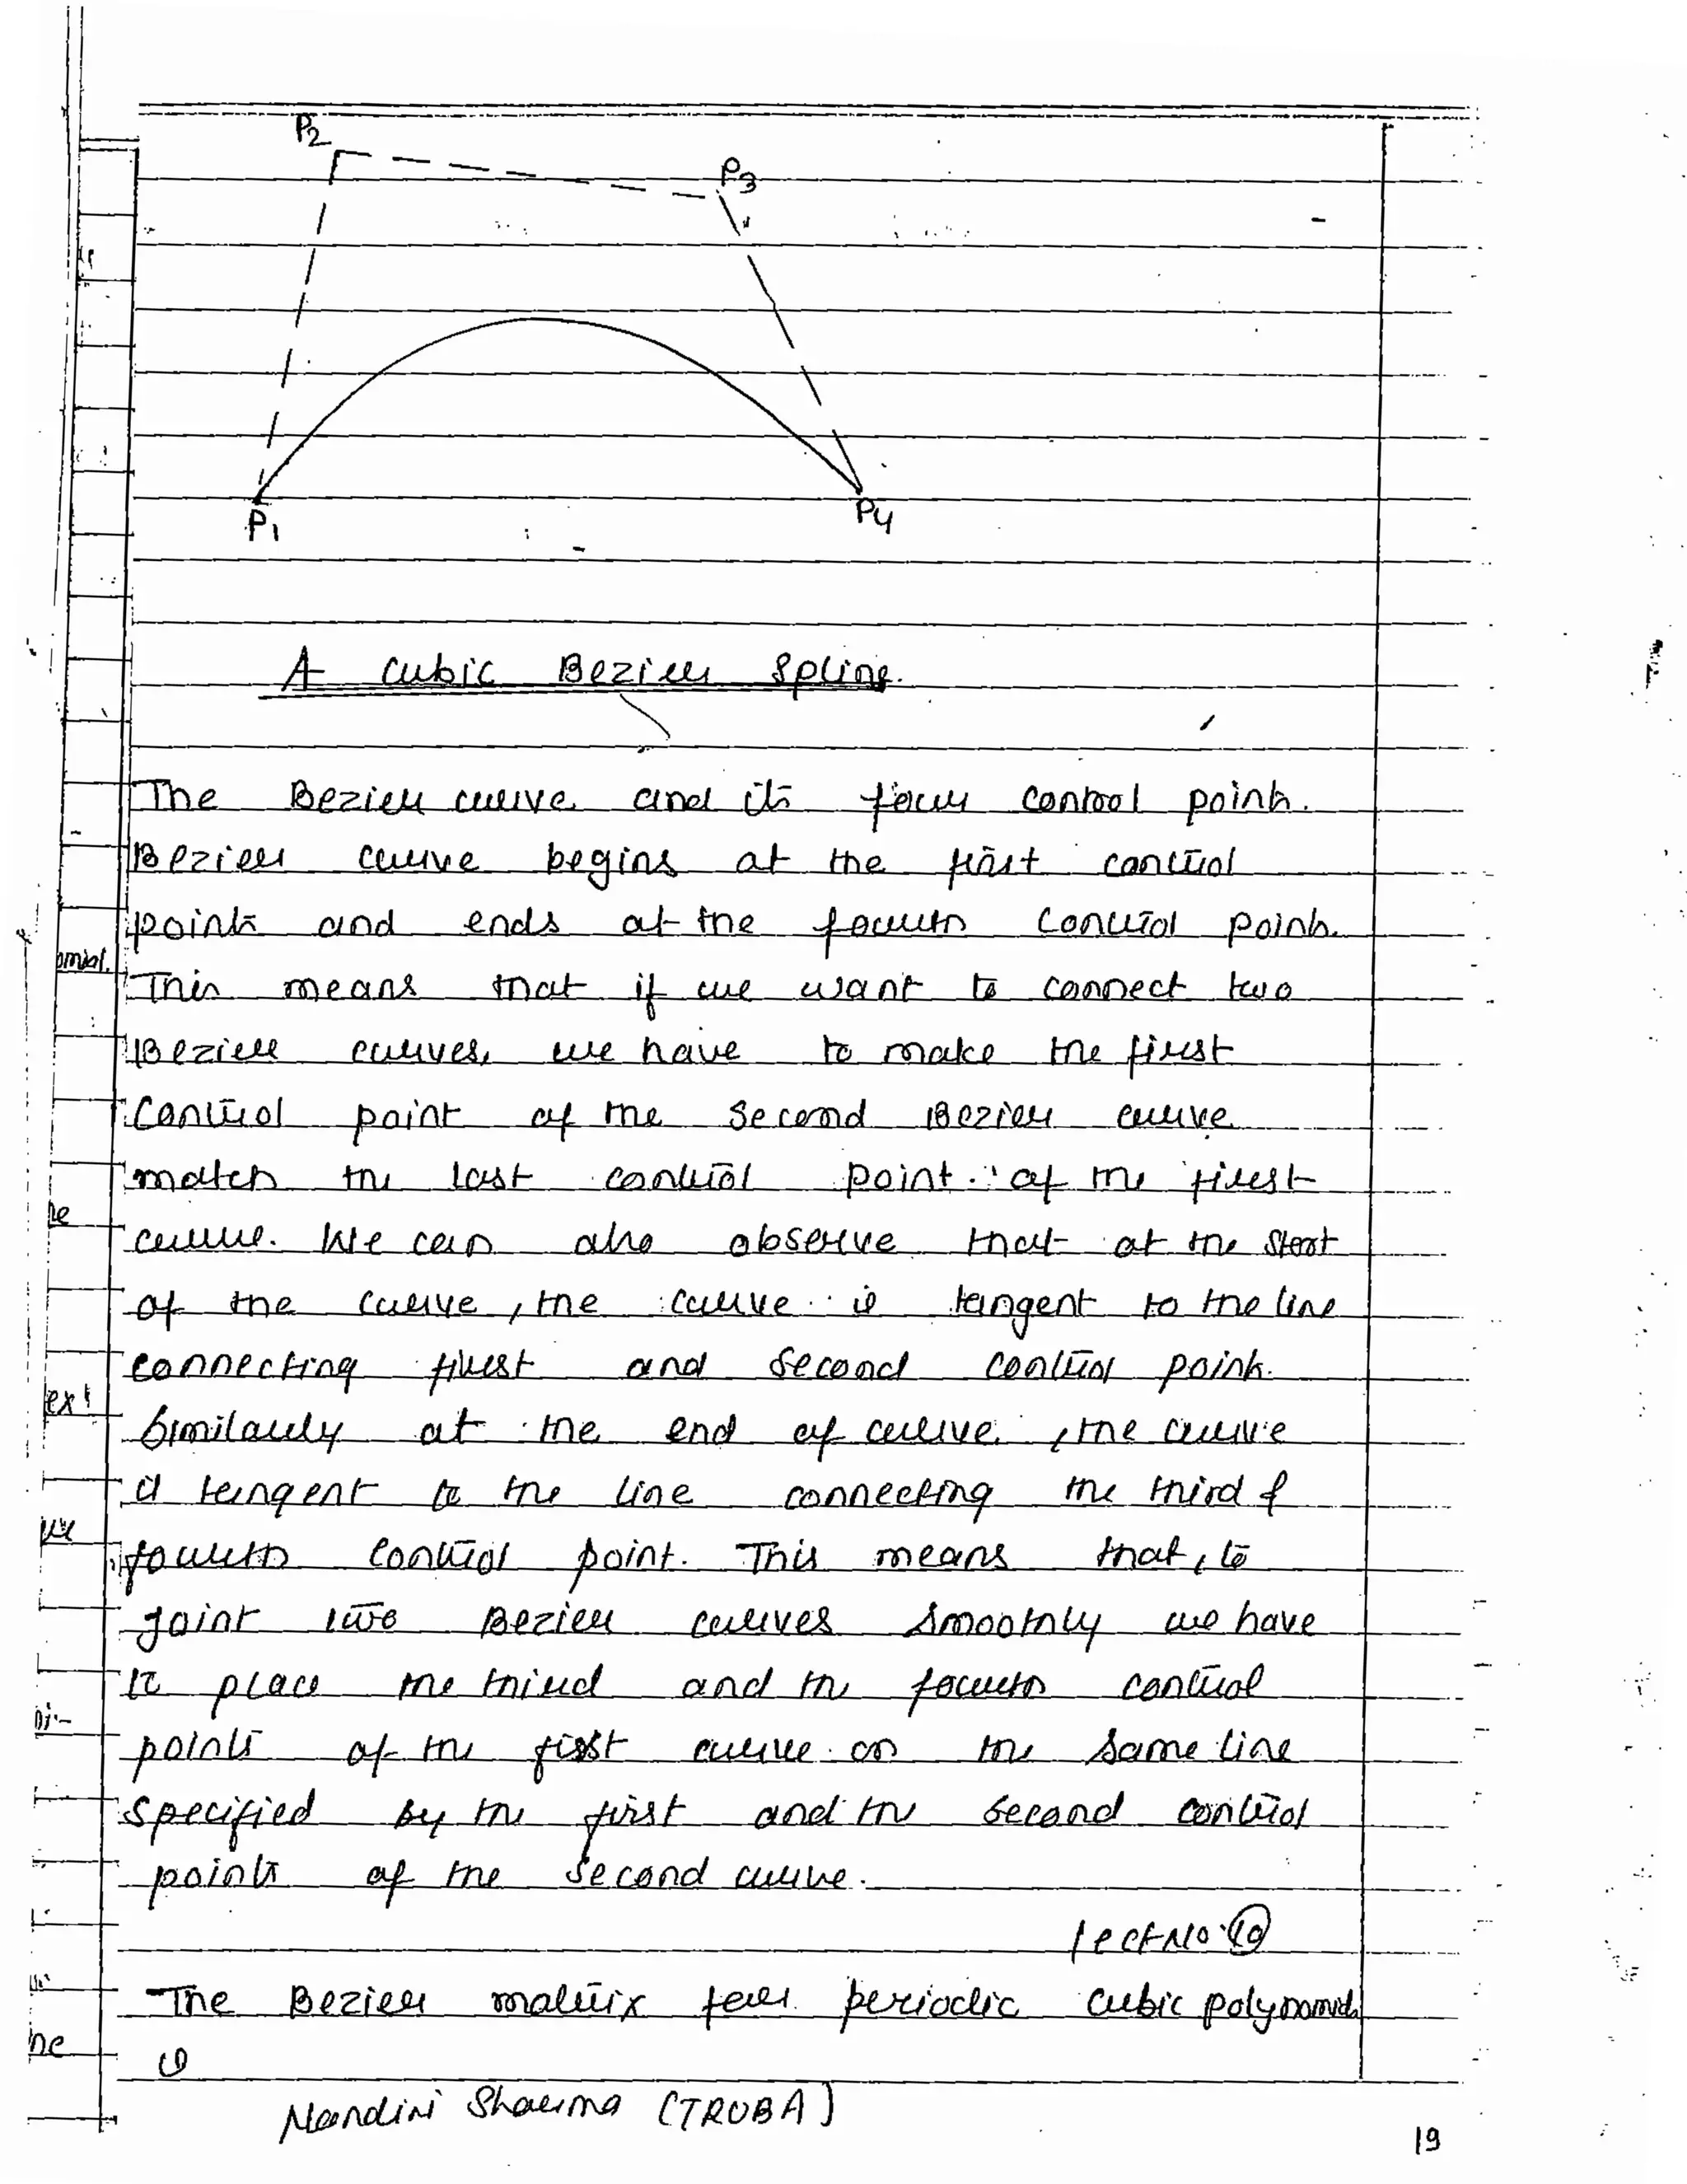 P2
P3
P1
P4
A Cubic Bezier Spline.
The Bezier curve and its four control points.
Bezier curve begins at the first control
points and ends at the fourth control points.
This means that if we want to connect two
Bezier curves, we have to make the first
control point of the second Bezier curve
match the last control point of the first
curve. We can also observe that at the start
of the curve, the curve is tangent to the line
connecting first and second control points.
Similarly at the end of curve, the curve
is tangent to the line connecting the third &
fourth control point. This means that, to
joint two Bezier curves smoothly we have
to place the third and the fourth control
points of the first curve on the same line
specified by the first and the second control
points of the second curve.
Lect No. 10
The Bezier matrix for periodic cubic polynomials
is
Nandini Sharma (TRUBA)
19
omial.
he
ex!
ne